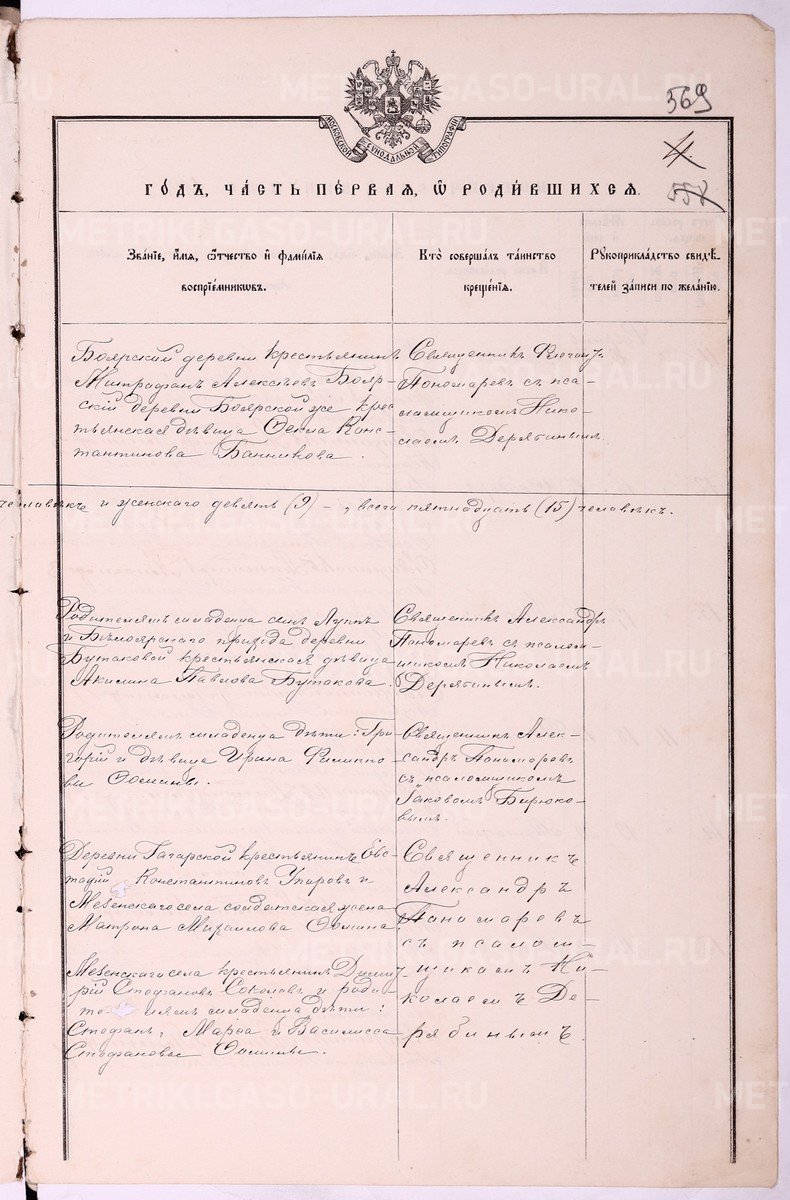 569
4.
558
МОСКОВСКОЙ СѴНОДАЛЬНОЙ ТИПОГРАФІИ
ГО́ДЪ, ЧА́СТЬ ПЕ́РВАЯ, Ѽ РОДИ́ВШИХСЯ.
Зва́ніе, и҆́мя, ѻ҆́тчество и҆ фами́лія
воспріе́мникѡвъ.
Кто̀ соверша́лъ та́инство
креще́нія.
Рꙋкоприкла́дство свидѣ́-
телей за́писи по жела́нію.
Боярской деревни крестьянинъ
Митрофанъ Алексѣевъ Бояр-
скій деревни Боярской же крес
тьянская дѣвица Ѳекла Конс-
тантинова Банникова.
Священникъ
Пономаревъ съ пса-
ломщикомъ Нико-
лаемъ Дерябинымъ
человѣкъ и женскаго девять (9) –, всего пятнадцать (15) человѣкъ.
Родителямъ младенца сынъ Луппъ
и Бѣлоярскаго прихода деревни
Бутаковой крестьянская дѣвица
Акилина Павлова Бутакова.
Священникъ Александръ
Пономаревъ съ псалом-
щикомъ Николаемъ
Дерябинымъ.
Родителямъ младенца дѣти: Гри-
горій и дѣвица Ирина Филиппо
вы Ѳомины.
Священникъ Алек-
сандръ Пономаревъ
съ псаломщикомъ
Іаковомъ Бирюко-
вымъ.
Деревни Гагарской крестьянинъ Евс
тафій Константиновъ Упоровъ и
Мезенскаго села солдатская жена
Матрона Михаилова Ѳомина.
Священникъ
Александръ
Пономаревъ
съ псалом-
щикомъ Ни-
колаемъ Де-
рябинымъ.
Мезенскаго села крестьянинъ Дими
трій Стефановъ Соколовъ и роди-
телямъ младенца дѣти:
Стефанъ, Марѳа и Василисса
Стефановы Ѳомины.
METRIKI.GASO-URAL.RU